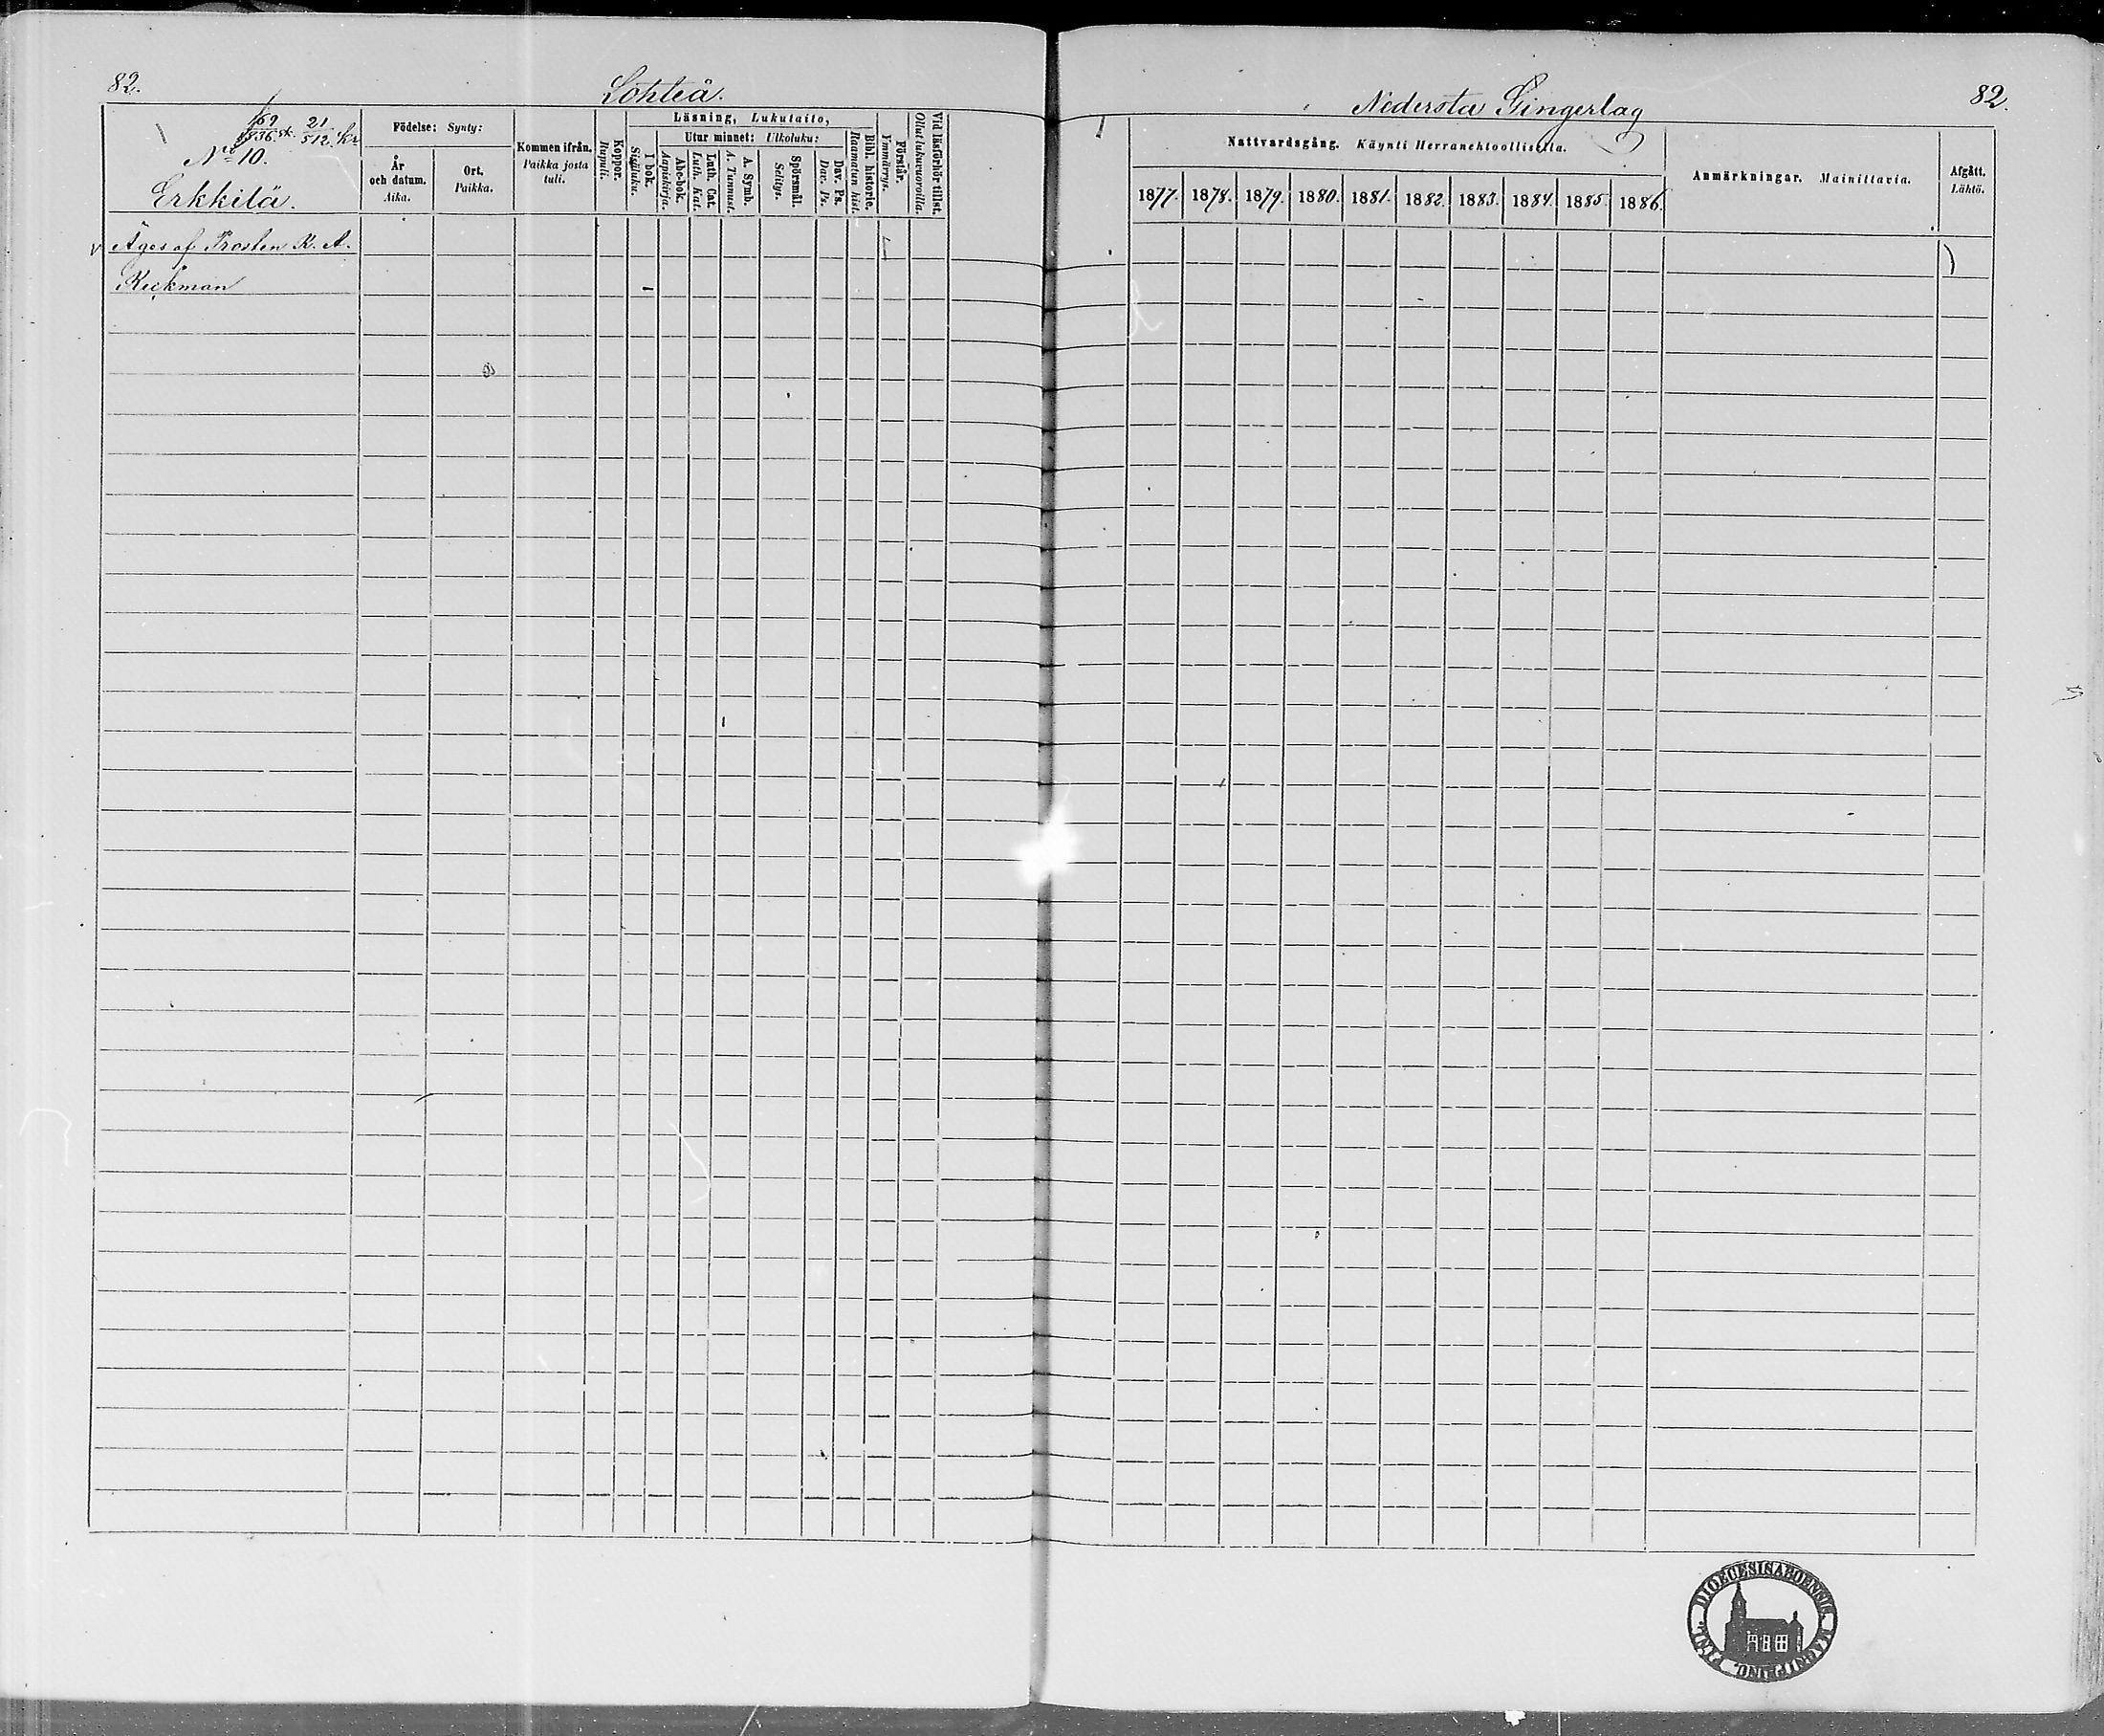 82.
Lohteå.
69/1536 sk. 21/512. kr
No 10.
Erkkilä.
Födelse: Synty:
År och datum. Aika.
Ort. Paikka.
Kommen ifrån. Paikka josta tuli.
Koppor. Rupuli.
Läsning, Lukutaito,
I bok. Sisäluku.
Utur minnet: Ulkoluku:
Abc-bok. Aapiskirja.
Luth. Cat. Luth. Kat.
A. Symb. A. Tunnust.
Spörsmål. Selitys.
Dav. Ps. Dav. Ps.
Bibl. historie. Raamatun hist.
Förstår. Ymmärrys.
Vid läsförhör tillst. Ollut lukuvuoroilla.
Äges af Prosten K. A.
Reckman
Nedersta Gingerlag
82.
Nattvardsgång. Käynti Herranehtoollisella.
1877. 1878. 1879. 1880. 1881. 1882. 1883. 1884. 1885. 1886.
Anmärkningar. Mainittavia.
Afgått. Lähtö.